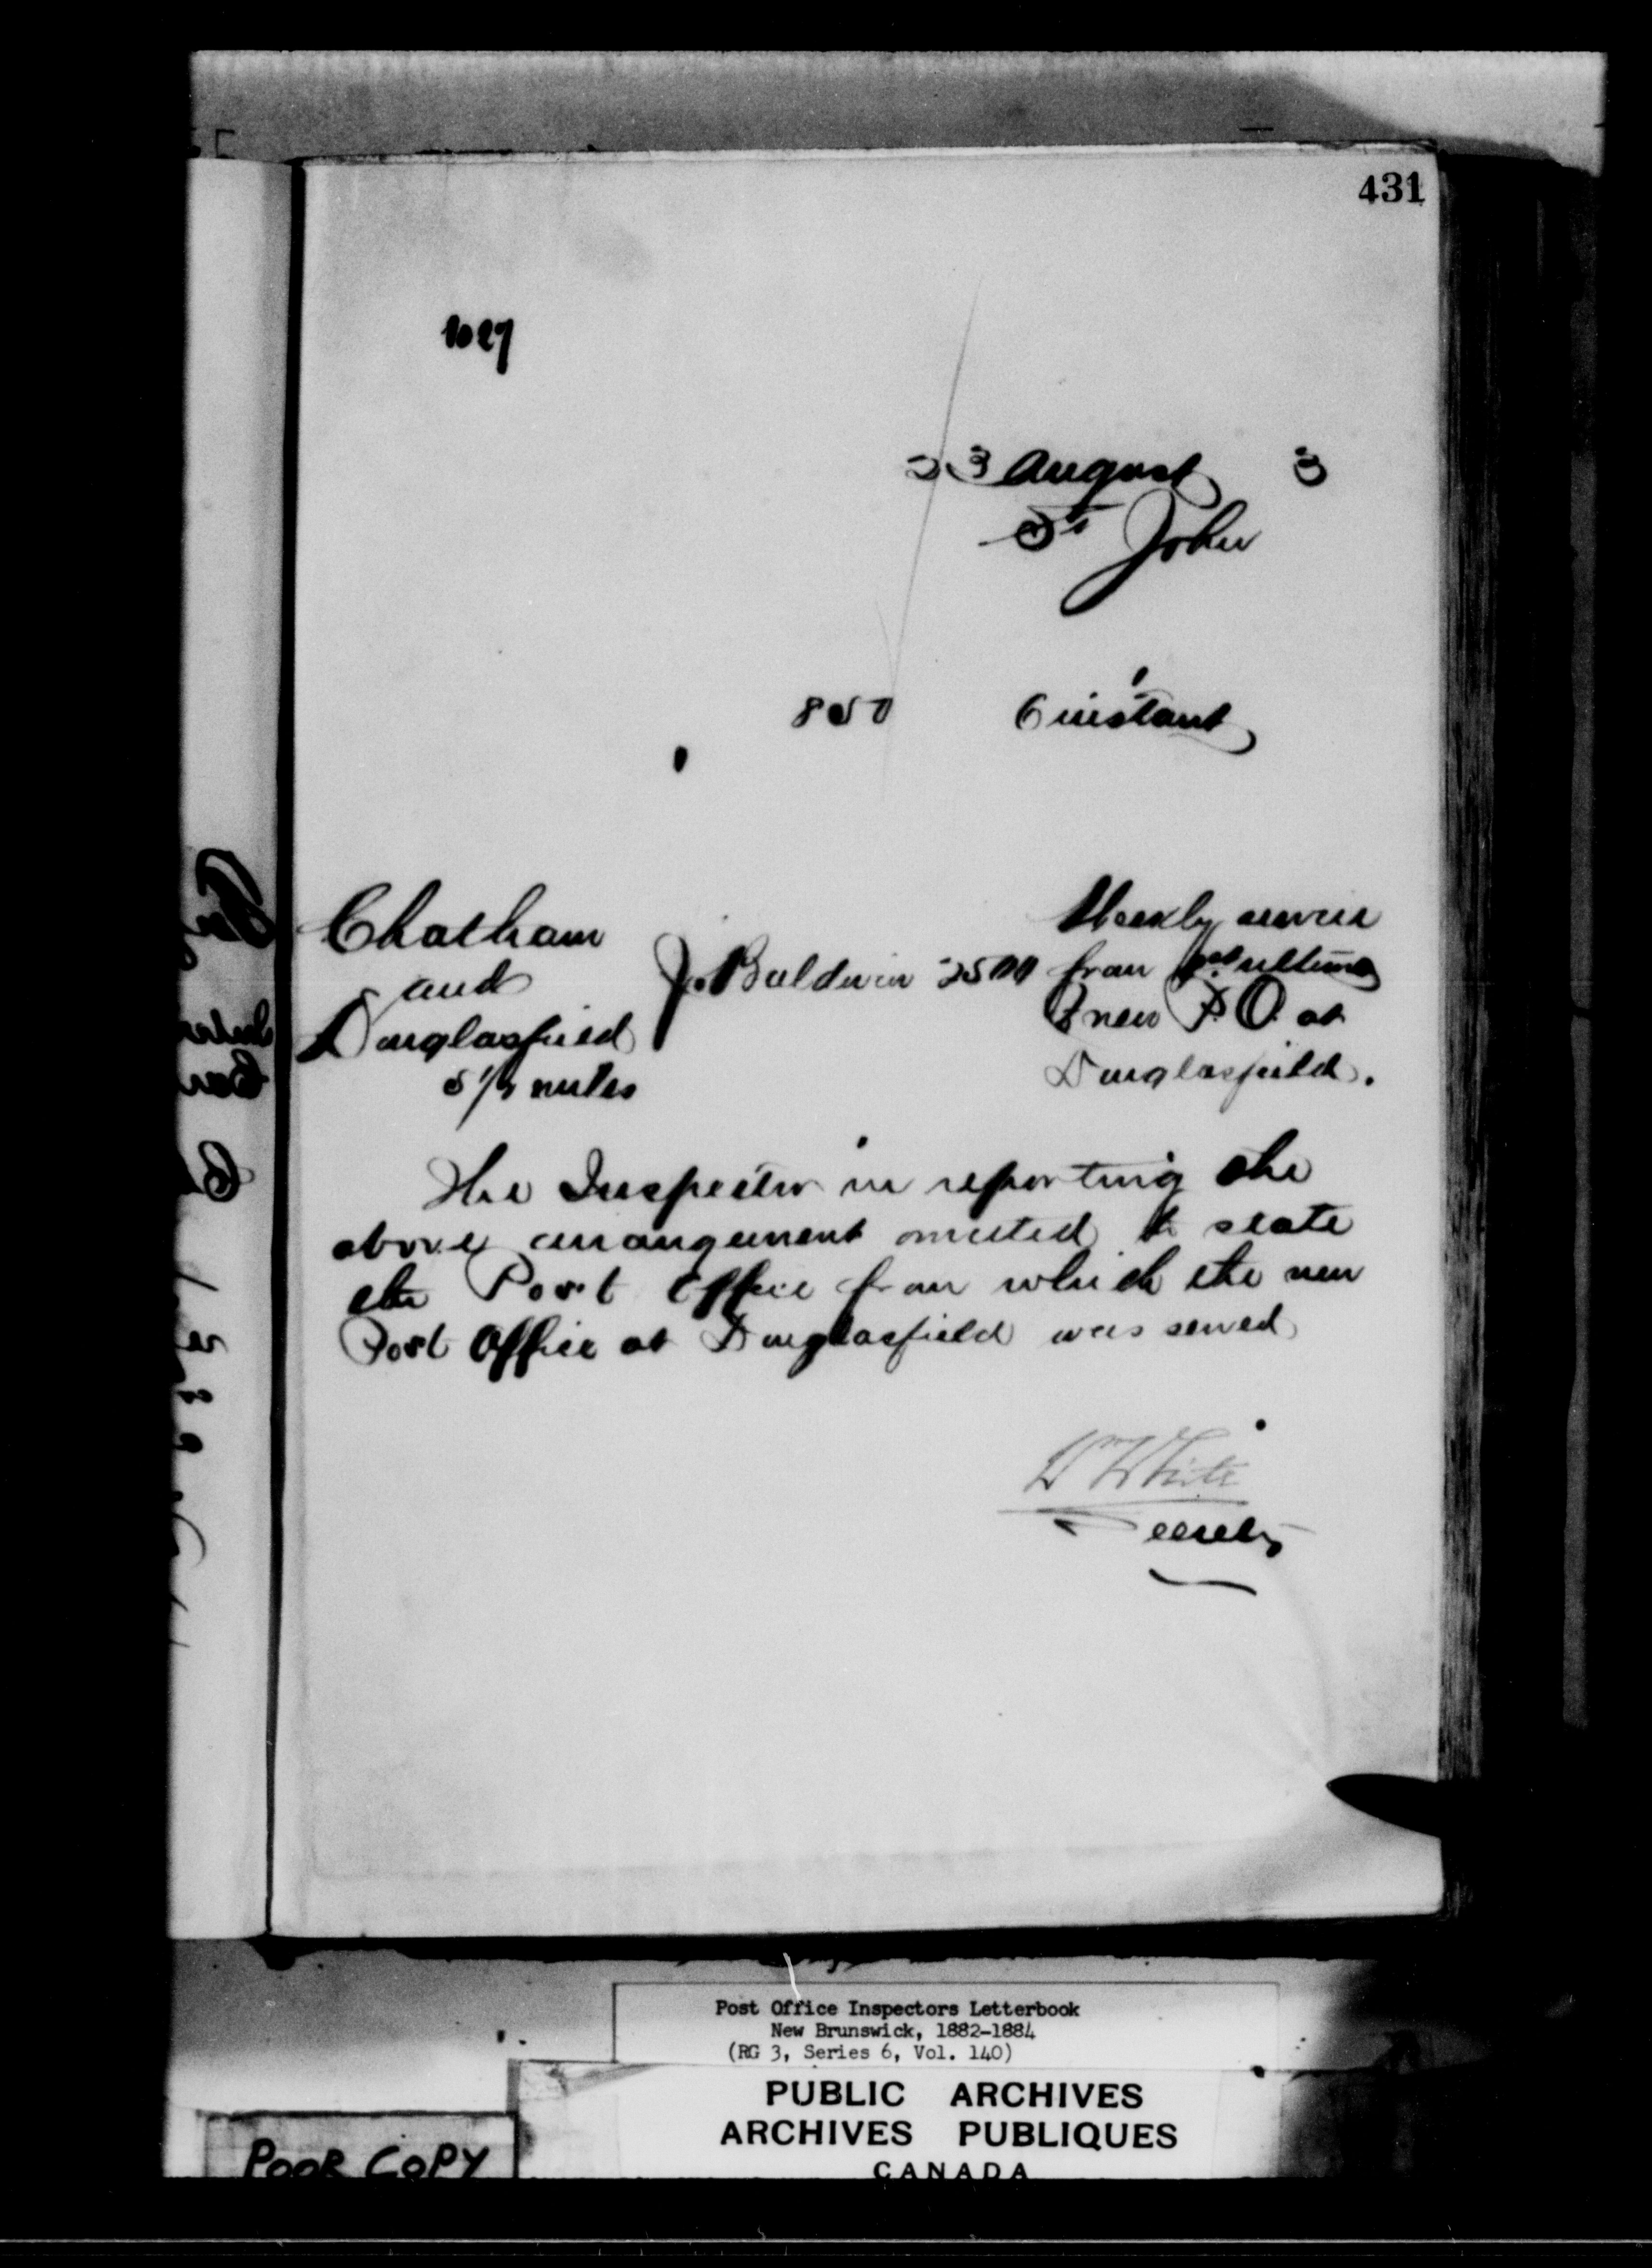 431
1027
23 August 3
St John
850 6 instant
Chatham
and
Douglasfield
5 1/2 miles
J. Baldwin 25 00
Weekly service
from 1st ultimo
& new P.O. at
Douglasfield.
The Inspector in reporting the
above arrangement omitted to state
the Post Office from which the new
Post Office at Douglasfield was served
W White
Secrety
Post Office Inspectors Letterbook
New Brunswick, 1882-1884
(RG 3, Series 6, Vol. 140)
PUBLIC ARCHIVES
ARCHIVES PUBLIQUES
CANADA
POOR COPY